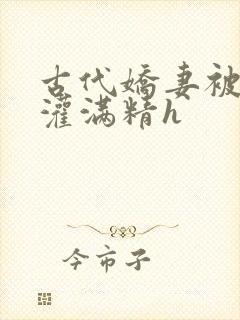 古代嬌妻被
灌满精h
今市子